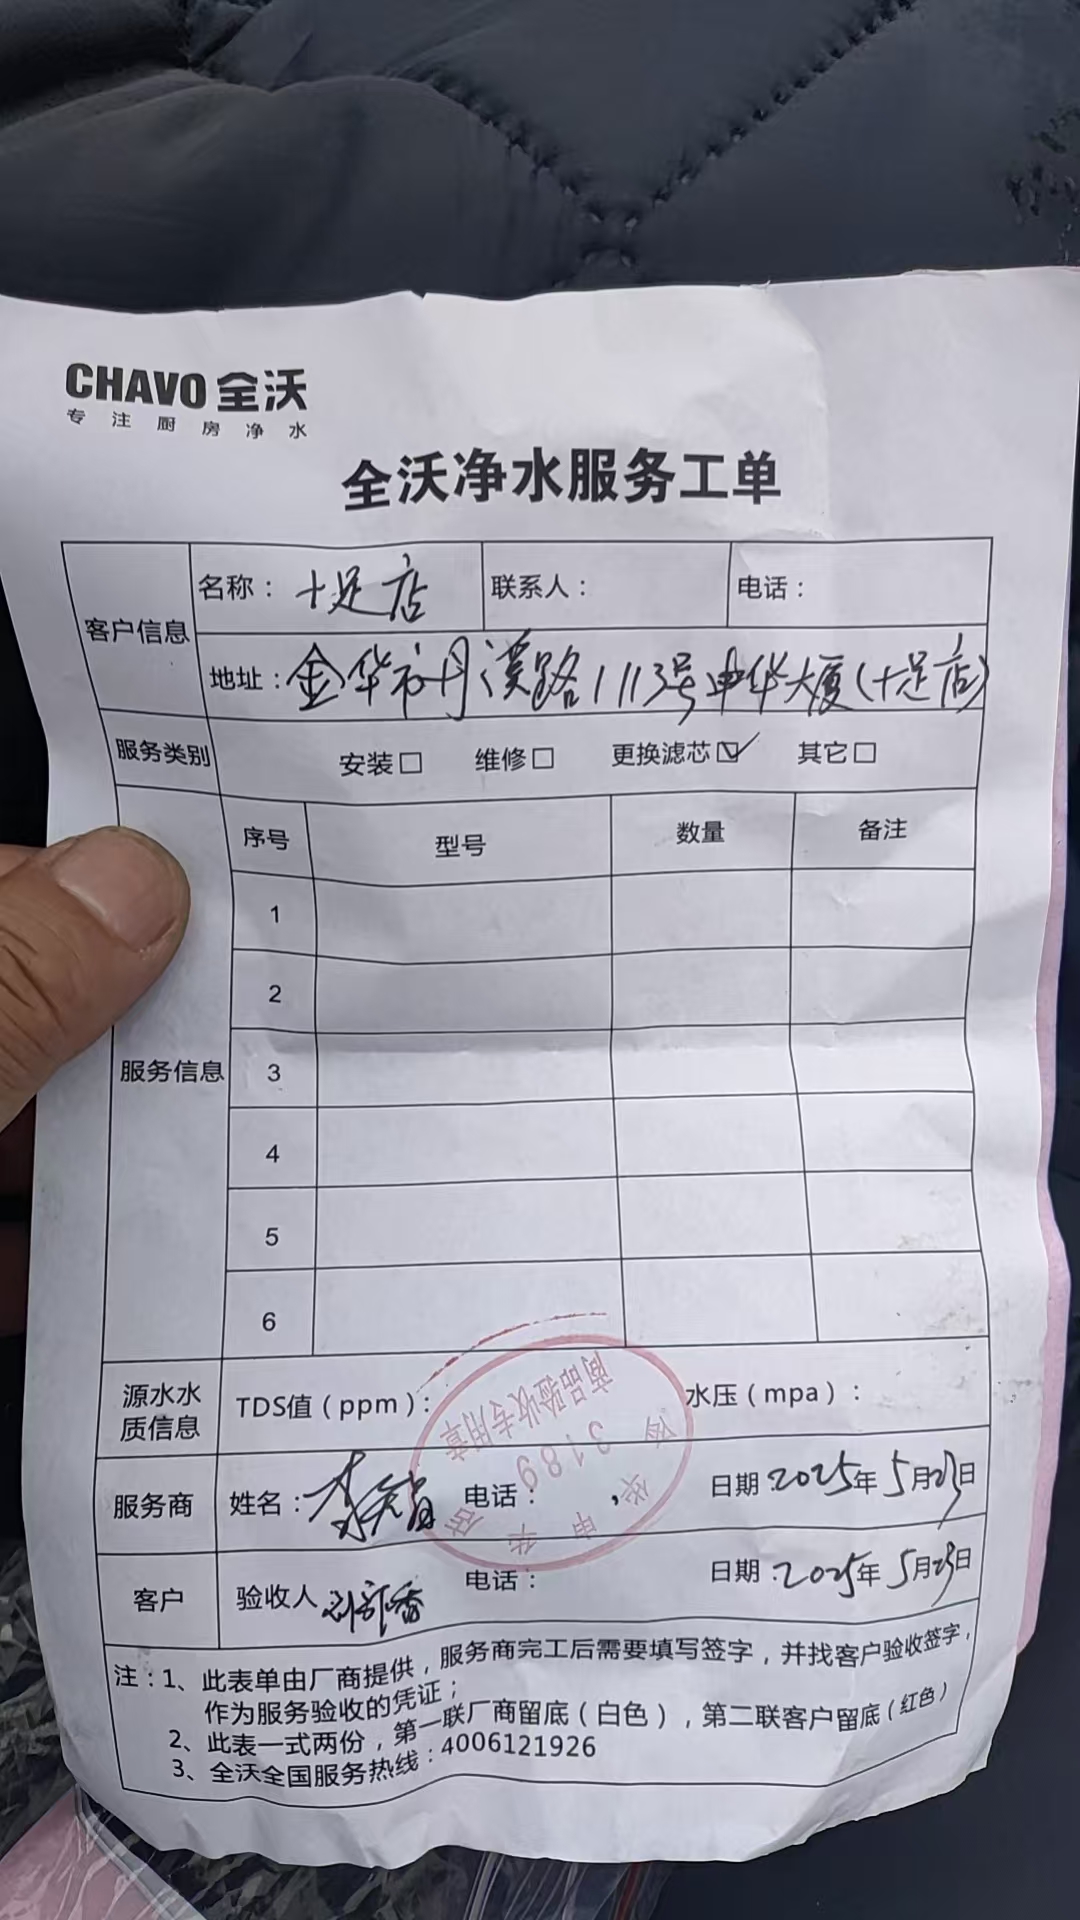 CHAVO 全沃
专注厨房净水
全沃净水服务工单
客户信息 名称：十足店 联系人： 电话：
地址：金华市丹溪路1113号申华大厦（十足店）
服务类别 安装□ 维修□ 更换滤芯☑ 其它□
服务信息 序号 型号 数量 备注
1
2
3
4
5
6
源水水质信息 TDS值（ppm）： 水压（mpa）：
商品验收专用章
3189
金华申华店
服务商 姓名：李 电话： 日期：2025年5月23日
客户 验收人 电话： 日期：2025年5月23日
注：1、此表单由厂商提供，服务商完工后需要填写签字，并找客户验收签字，
作为服务验收的凭证；
2、此表一式两份，第一联厂商留底（白色），第二联客户留底（红色）
3、全沃全国服务热线：4006121926